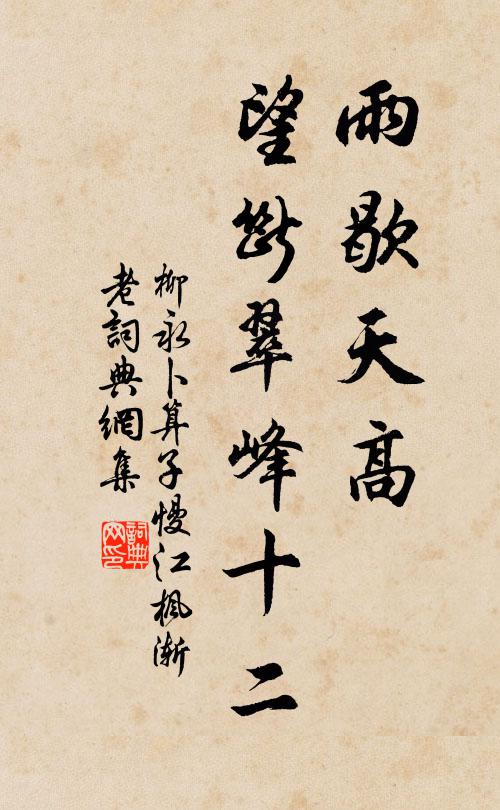 雨歇天高
望斷翠峰十二
柳永卜算子慢江楓漸
老詞典網集
詞典網印